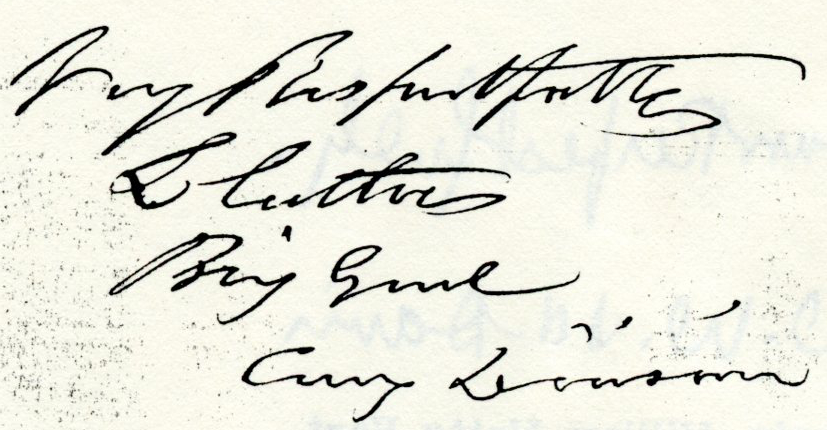 Very Respectfully
L Cutler
Brig Genl
Comg Division